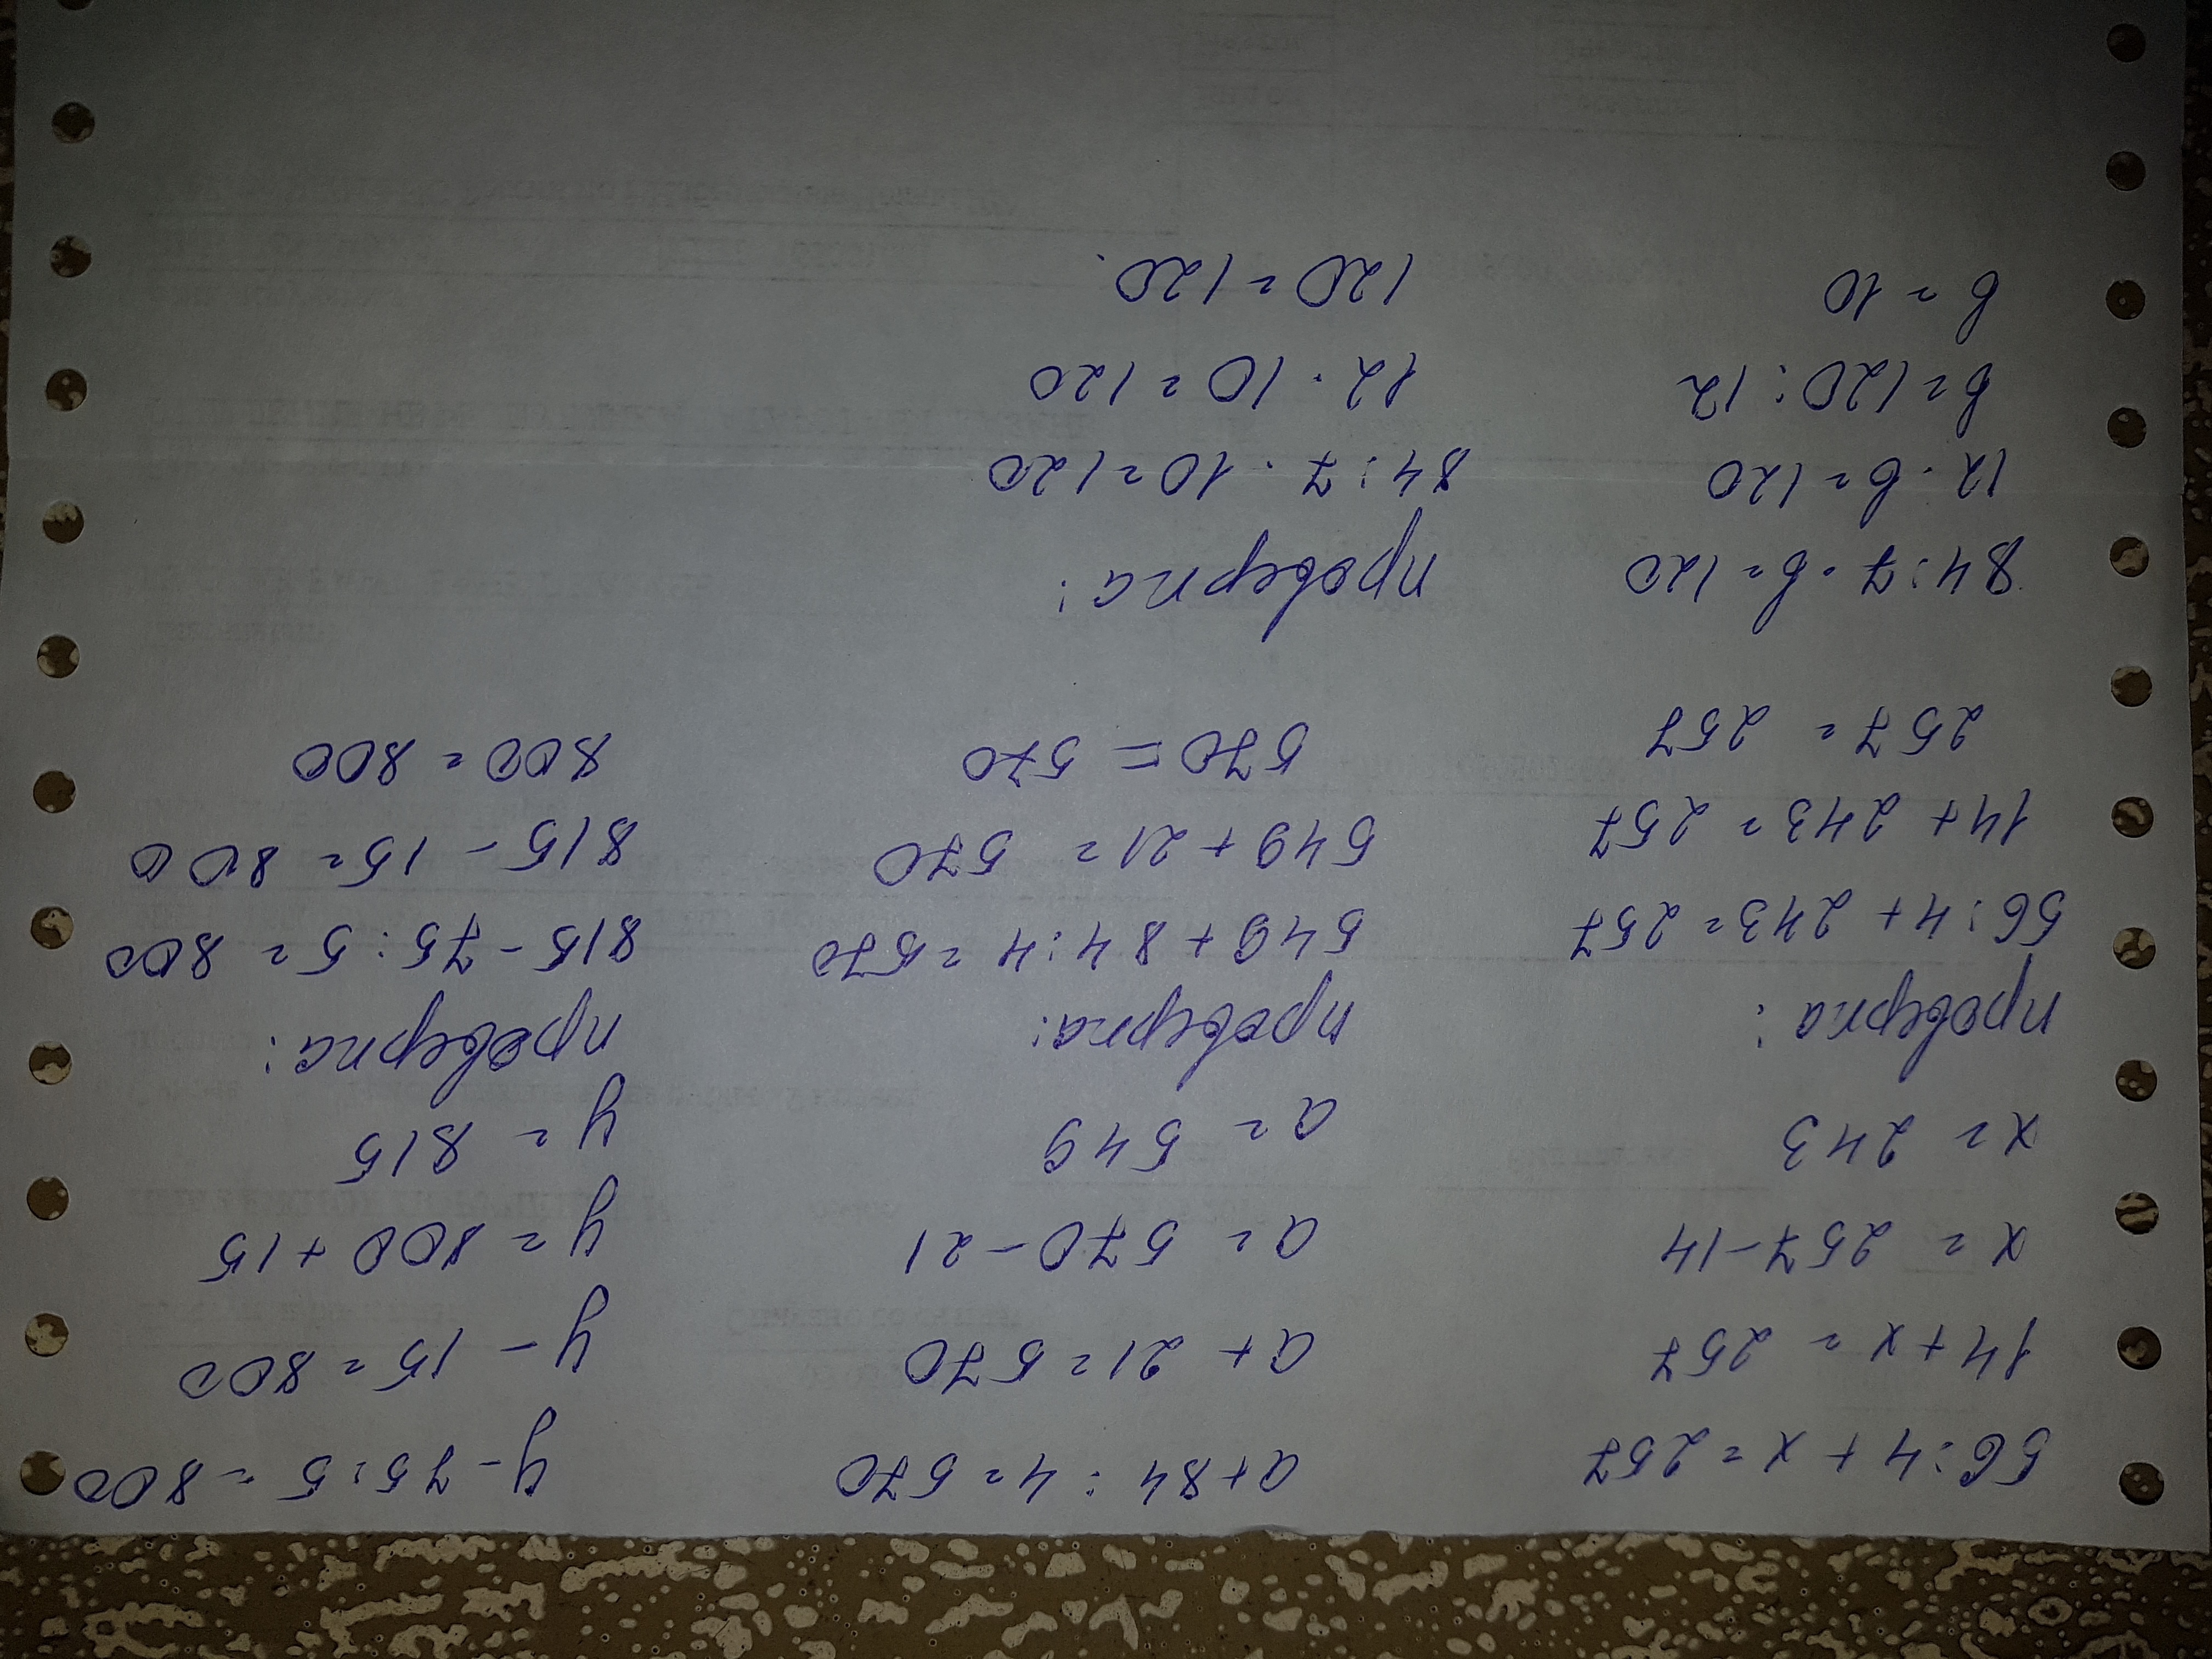 56:4 + x = 257
14 + x = 257
x = 257 - 14
x = 243
проверка:
56:4 + 243 = 257
14 + 243 = 257
257 = 257
a + 84 : 4 = 570
a + 21 = 570
a = 570 - 21
a = 549
проверка:
549 + 84 : 4 = 570
549 + 21 = 570
570 = 570
y - 75 : 5 = 800
y - 15 = 800
y = 800 + 15
y = 815
проверка:
815 - 75 : 5 = 800
815 - 15 = 800
800 = 800
84 : 7 · в = 120
12 · в = 120
в = 120 : 12
в = 10
проверка:
84 : 7 · 10 = 120
12 · 10 = 120
120 = 120.